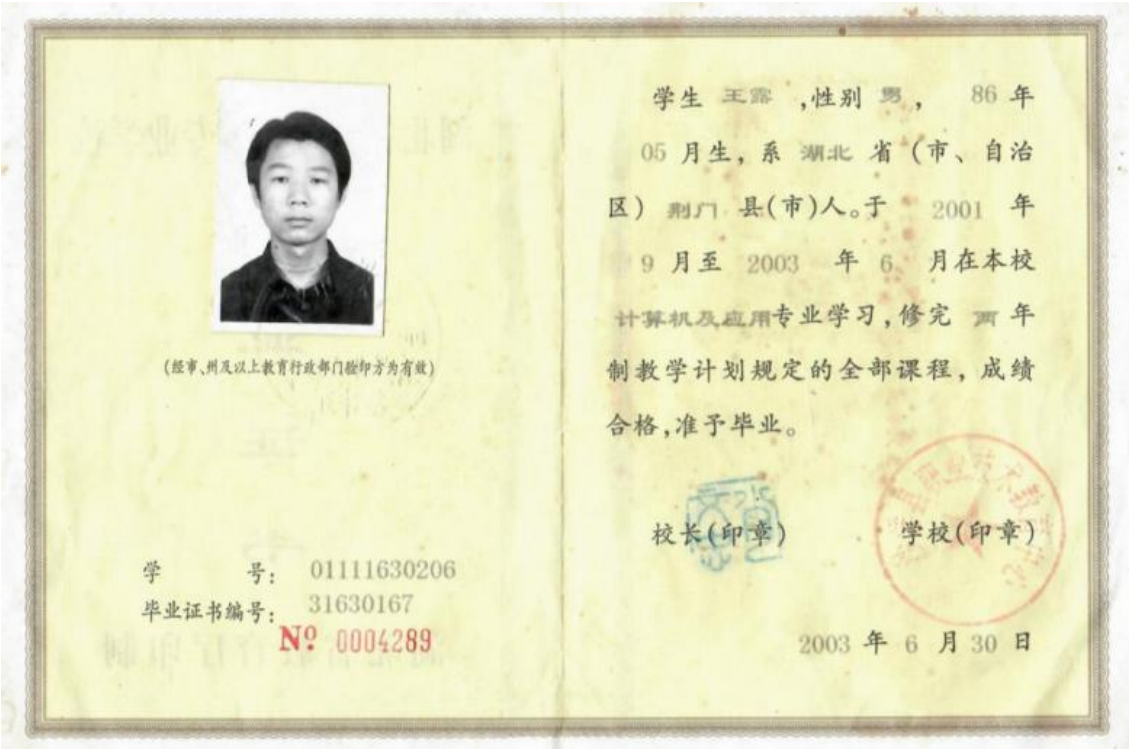 (经市、州及以上教育行政部门验印方为有效)
学 号: 01111630206
毕业证书编号: 31630167
Nº 0004289
学生 王露 ,性别 男, 86 年
05 月生, 系 湖北 省 (市、自治
区) 荆门 县(市)人。于 2001 年
9 月至 2003 年 6 月在本校
计算机及应用专业学习,修完 两 年
制教学计划规定的全部课程, 成绩
合格,准予毕业。
校长(印章) 学校(印章)
县职业技术教
中心
2003 年 6 月 30 日